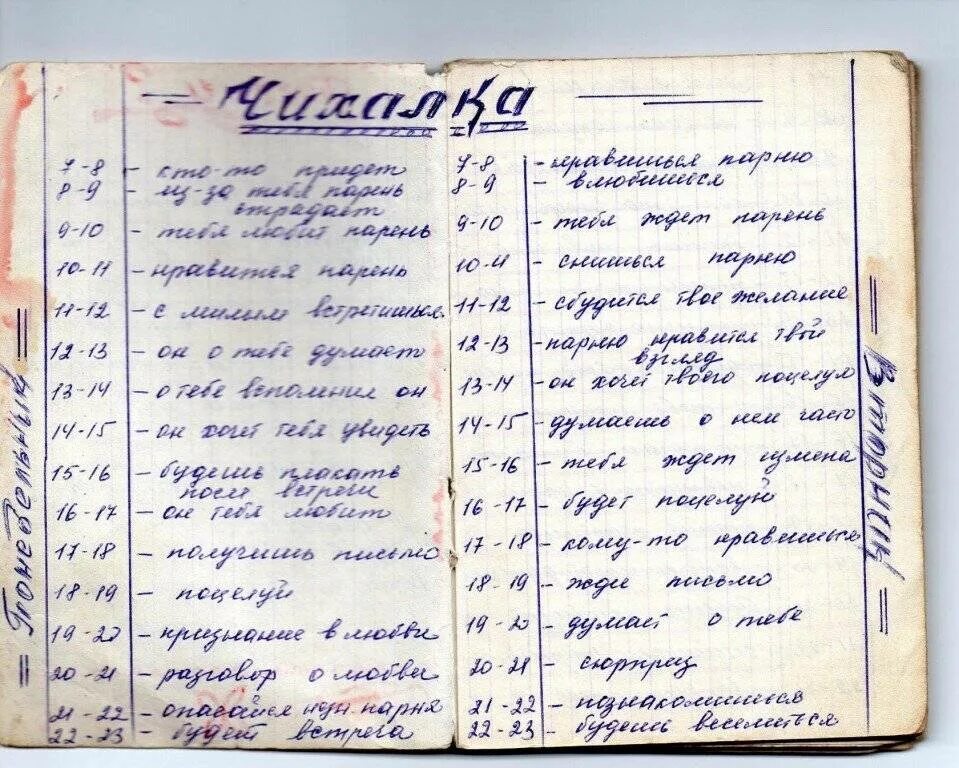 Чихалка
Понедельник
7-8 – кто-то придет
8-9 – из-за тебя парень
страдает
9-10 – тебя любит парень
10-11 – нравится парень
11-12 – с милым встретишься
12-13 – он о тебе думает
13-14 – о тебе вспомнил он
14-15 – он хочет тебя увидеть
15-16 – будешь плакать
после встречи
16-17 – он тебя любит
17-18 – получишь письмо
18-19 – поцелуй
19-20 – признание в любви
20-21 – разговор о любви
21-22 – опасайся парня
22-23 – будет встреча
Вторник
7-8 – нравишься парню
8-9 – влюбишься
9-10 – тебя ждет парень
10-11 – снишься парню
11-12 – сбудится твое желание
12-13 – парню нравится твой
взгляд
13-14 – он хочет твоего поцелуя
14-15 – думаешь о нем часто
15-16 – тебя ждет измена
16-17 – будет поцелуй
17-18 – кому-то нравишься
18-19 – жди письмо
19-20 – думает о тебе
20-21 – сюрприз
21-22 – познакомишься
22-23 – будешь веселиться